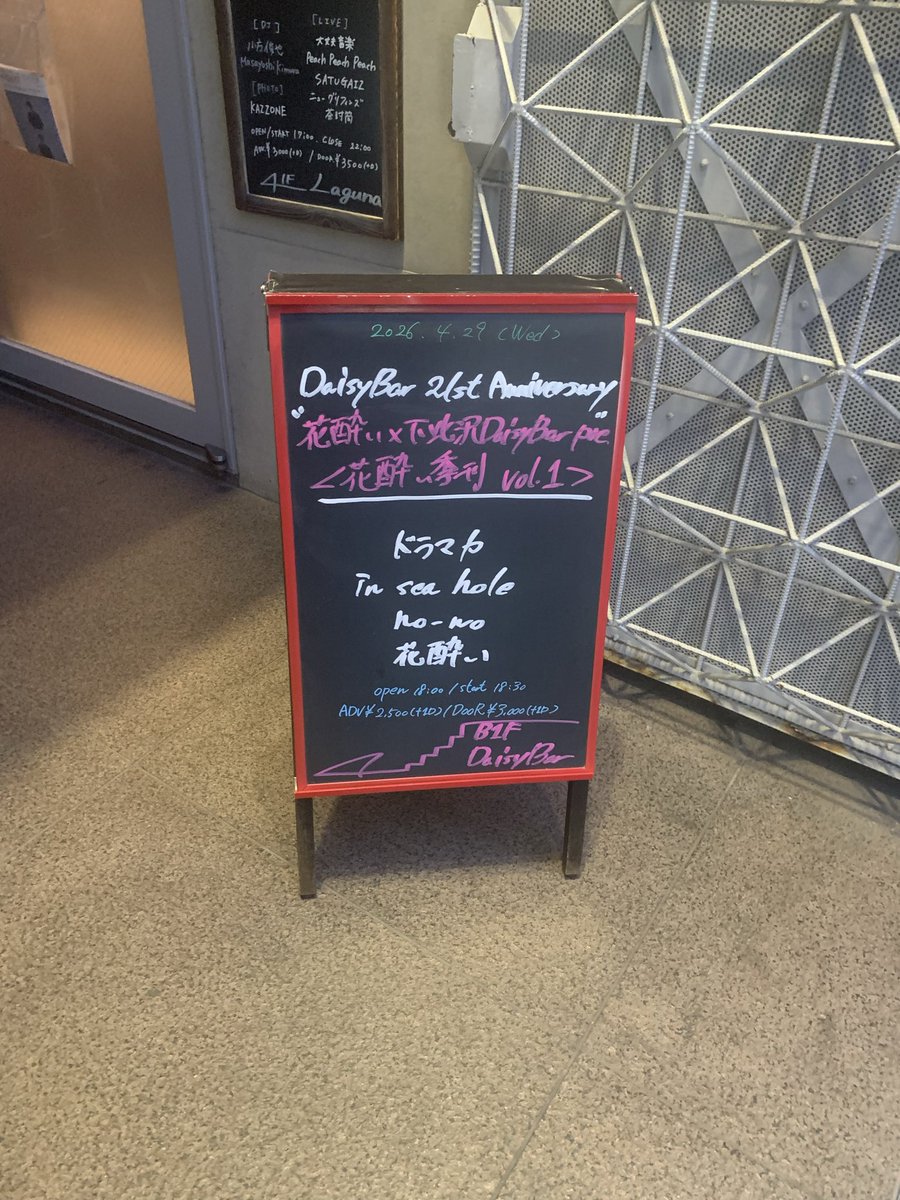 [DJ]
Masayoshi Kimura
[PHOTO]
KAZZONE
[LIVE]
大丈夫音楽
Peach Peach Peach
SATUGAIZ
茶封筒
OPEN/START 17:00 CLOSE 22:00
ADV ¥3,000(+D) / DOOR ¥3500(+D)
4F Laguna
2026.4.29 (Wed)
DaisyBar 21st Anniversary
"花酔い×下北沢DaisyBar pre."
<花酔い季刊 vol.1>
ドラマカ
in sea hole
no-no
花酔い
open 18:00 / start 18:30
ADV ¥2,500(+1D) / DOOR ¥3,000(+1D)
B1F
DaisyBar